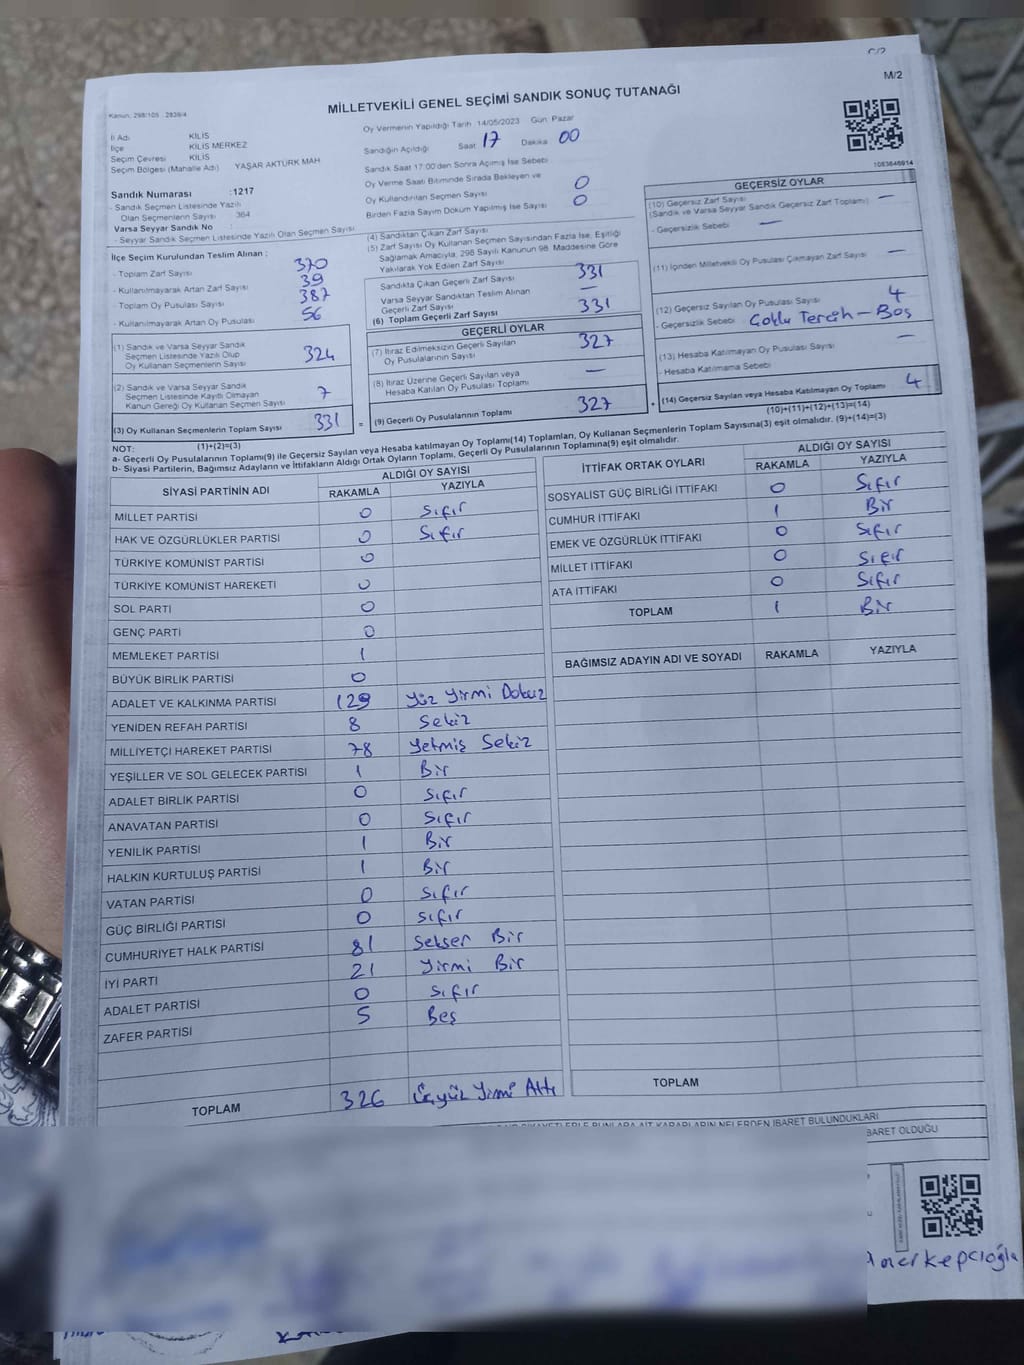 C/2
M/2
Kanun, 298/105 . 2839/4
MİLLETVEKİLİ GENEL SEÇİMİ SANDIK SONUÇ TUTANAĞI
İl Adı KİLİS
İlçe KİLİS MERKEZ
Seçim Çevresi KİLİS
Seçim Bölgesi (Mahalle Adı) YAŞAR AKTÜRK MAH
Sandık Numarası : 1217
- Sandık Seçmen Listesinde Yazılı
Olan Seçmenlerin Sayısı 364
Varsa Seyyar Sandık No :
- Seyyar Sandık Seçmen Listesinde Yazılı Olan Seçmen Sayısı
Oy Vermenin Yapıldığı Tarih 14/05/2023 Gün Pazar
Sandığın Açıldığı Saat 17 Dakika 00
Sandık Saat 17:00'den Sonra Açılmış İse Sebebi
Oy Verme Saati Bitiminde Sırada Bekleyen ve
Oy Kullandırılan Seçmen Sayısı 0
Birden Fazla Sayım Döküm Yapılmış İse Sayısı 0
1083646914
İlçe Seçim Kurulundan Teslim Alınan ;
- Toplam Zarf Sayısı 370
- Kullanılmayarak Artan Zarf Sayısı 39
- Toplam Oy Pusulası Sayısı 387
- Kullanılmayarak Artan Oy Pusulası 56
(1) Sandık ve Varsa Seyyar Sandık
Seçmen Listesinde Yazılı Olup
Oy Kullanan Seçmenlerin Sayısı 324
(2) Sandık ve Varsa Seyyar Sandık
Seçmen Listesinde Kayıtlı Olmayan
Kanun Gereği Oy Kullanan Seçmen Sayısı 7
(3) Oy Kullanan Seçmenlerin Toplam Sayısı 331
(1)+(2)=(3)
(4) Sandıktan Çıkan Zarf Sayısı
(5) Zarf Sayısı Oy Kullanan Seçmen Sayısından Fazla İse, Eşitliği
Sağlamak Amacıyla, 298 Sayılı Kanunun 98. Maddesine Göre
Yakılarak Yok Edilen Zarf Sayısı
Sandıkta Çıkan Geçerli Zarf Sayısı 331
Varsa Seyyar Sandıktan Teslim Alınan
Geçerli Zarf Sayısı —
(6) Toplam Geçerli Zarf Sayısı 331
GEÇERLİ OYLAR
(7) İtiraz Edilmeksizin Geçerli Sayılan
Oy Pusulalarının Sayısı 327
(8) İtiraz Üzerine Geçerli Sayılan veya
Hesaba Katılan Oy Pusulası Toplamı —
= (9) Geçerli Oy Pusulalarının Toplamı 327
GEÇERSİZ OYLAR
(10) Geçersiz Zarf Sayısı —
(Sandık ve Varsa Seyyar Sandık Geçersiz Zarf Toplamı)
- Geçersizlik Sebebi —
(11) İçinden Milletvekili Oy Pusulası Çıkmayan Zarf Sayısı —
(12) Geçersiz Sayılan Oy Pusulası Sayısı 4
- Geçersizlik Sebebi Çoklu Tercih - Boş
(13) Hesaba Katılmayan Oy Pusulası Sayısı —
- Hesaba Katılmama Sebebi
+ (14) Geçersiz Sayılan veya Hesaba Katılmayan Oy Toplamı 4
(10)+(11)+(12)+(13)=(14)
NOT:
a- Geçerli Oy Pusulalarının Toplamı(9) ile Geçersiz Sayılan veya Hesaba katılmayan Oy Toplamı(14) Toplamları, Oy Kullanan Seçmenlerin Toplam Sayısına(3) eşit olmalıdır. (9)+(14)=(3)
b- Siyasi Partilerin, Bağımsız Adayların ve İttifakların Aldığı Ortak Oyların Toplamı, Geçerli Oy Pusulalarının Toplamına(9) eşit olmalıdır.
SİYASİ PARTİNİN ADI ALDIĞI OY SAYISI
RAKAMLA YAZIYLA
MİLLET PARTİSİ 0 Sıfır
HAK VE ÖZGÜRLÜKLER PARTİSİ 0 Sıfır
TÜRKİYE KOMÜNİST PARTİSİ 0
TÜRKİYE KOMÜNİST HAREKETİ 0
SOL PARTİ 0
GENÇ PARTİ 0
MEMLEKET PARTİSİ 1
BÜYÜK BİRLİK PARTİSİ 0
ADALET VE KALKINMA PARTİSİ 129 Yüz Yirmi Dokuz
YENİDEN REFAH PARTİSİ 8 Sekiz
MİLLİYETÇİ HAREKET PARTİSİ 78 Yetmiş Sekiz
YEŞİLLER VE SOL GELECEK PARTİSİ 1 Bir
ADALET BİRLİK PARTİSİ 0 Sıfır
ANAVATAN PARTİSİ 0 Sıfır
YENİLİK PARTİSİ 1 Bir
HALKIN KURTULUŞ PARTİSİ 1 Bir
VATAN PARTİSİ 0 Sıfır
GÜÇ BİRLİĞİ PARTİSİ 0 Sıfır
CUMHURİYET HALK PARTİSİ 81 Seksen Bir
İYİ PARTİ 21 Yirmi Bir
ADALET PARTİSİ 0 Sıfır
ZAFER PARTİSİ 5 Beş
TOPLAM 326 Üçyüz Yirmi Altı
İTTİFAK ORTAK OYLARI ALDIĞI OY SAYISI
RAKAMLA YAZIYLA
SOSYALİST GÜÇ BİRLİĞİ İTTİFAKI 0 Sıfır
CUMHUR İTTİFAKI 1 Bir
EMEK VE ÖZGÜRLÜK İTTİFAKI 0 Sıfır
MİLLET İTTİFAKI 0 Sıfır
ATA İTTİFAKI 0 Sıfır
TOPLAM 1 Bir
BAĞIMSIZ ADAYIN ADI VE SOYADI RAKAMLA YAZIYLA
TOPLAM
BUNLARA AİT KARARLARIN NELERDEN İBARET BULUNDUKLARI
İBARET OLDUĞU